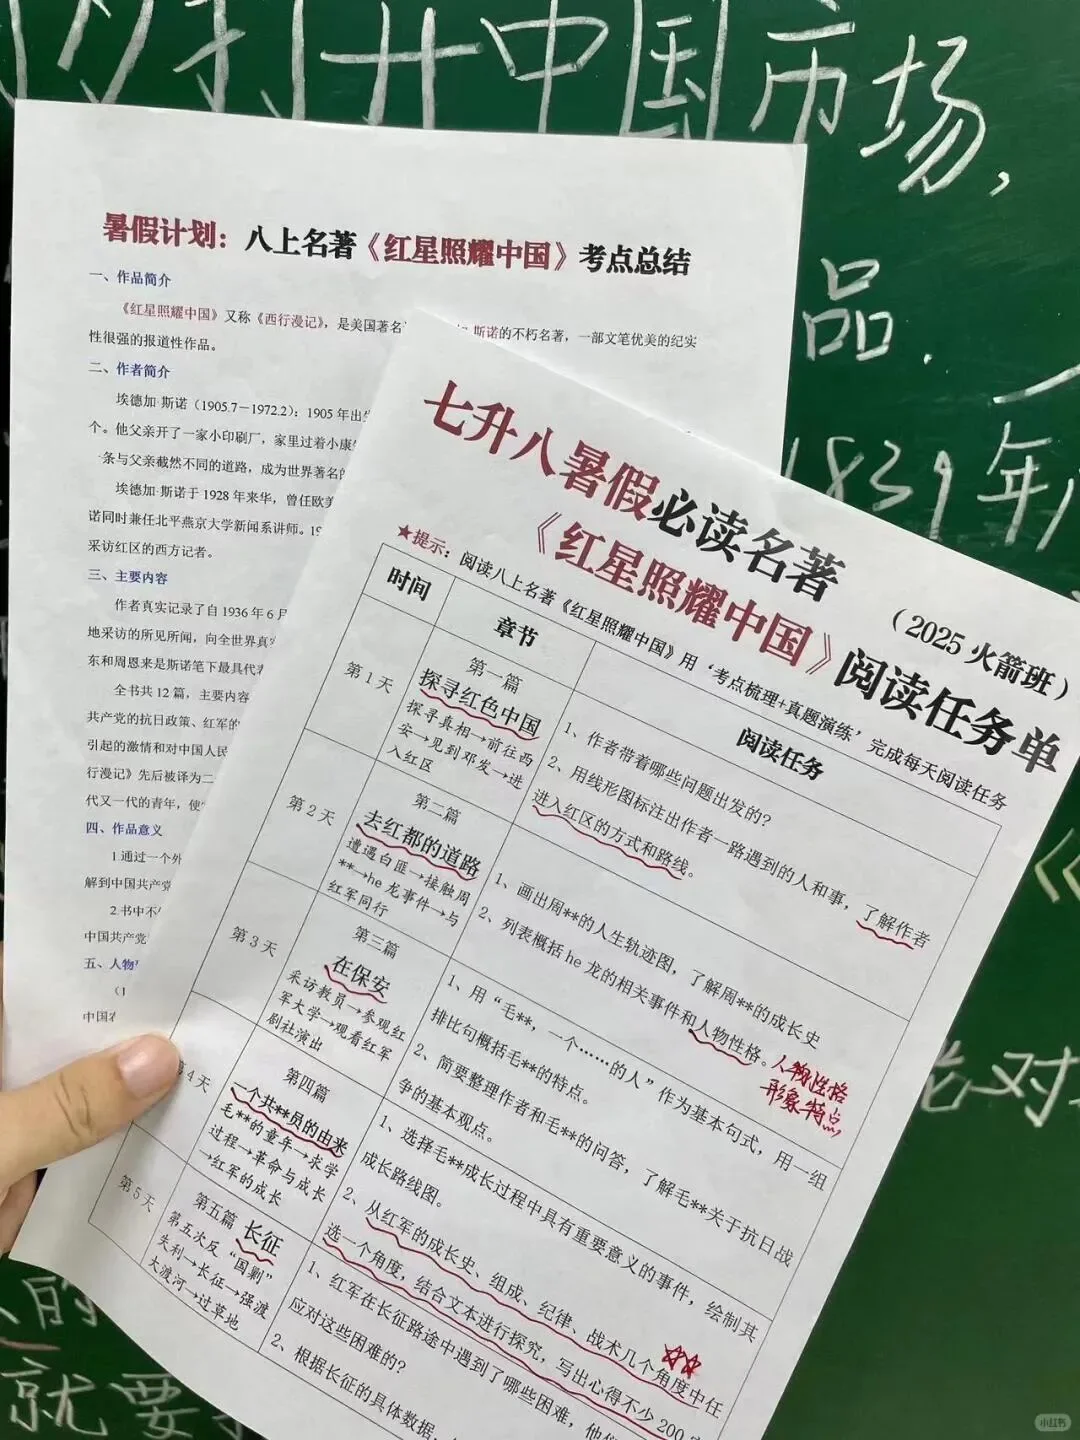 打开中国市场，
品.
1839年
论对
的
就要
暑假计划：八上名著《红星照耀中国》考点总结
一、作品简介
《红星照耀中国》又称《西行漫记》，是美国著名
斯诺的不朽名著，一部文笔优美的纪实
性很强的报道性作品。
二、作者简介
埃德加·斯诺（1905.7－1972.2）：1905年出生
个。他父亲开了一家小印刷厂，家里过着小康
条与父亲截然不同的道路，成为世界著名的
埃德加·斯诺于1928年来华，曾任欧美
诺同时兼任北平燕京大学新闻系讲师。19
采访红区的西方记者。
三、主要内容
作者真实记录了自1936年6月
地采访的所见所闻，向全世界真实
东和周恩来是斯诺笔下最具代表
全书共12篇，主要内容
共产党的抗日政策、红军的
引起的激情和对中国人民
行漫记》先后被译为二
代又一代的青年，使
四、作品意义
1.通过一个外
解到中国共产党
2.书中不
中国共产党
五、人物
（1
中国
七升八暑假必读名著
《红星照耀中国》阅读任务单
（2025火箭班）
★提示：阅读八上名著《红星照耀中国》用‘考点梳理+真题演练’完成每天阅读任务
时间
章节
阅读任务
第1天
第一篇
探寻红色中国
探寻真相→前往西
安→见到邓发→进
入红区
1、作者带着哪些问题出发的？
2、用线形图标注出作者一路遇到的人和事，了解作者
进入红区的方式和路线。
第2天
第二篇
去红都的道路
遭遇白匪→接触周
**→he龙事件→与
红军同行
1、画出周**的人生轨迹图，了解周**的成长史
2、列表概括he龙的相关事件和人物性格。
人物性格
形象特点
第3天
第三篇
在保安
采访教员→参观红
军大学→观看红军
剧社演出
1、用“毛**，一个……的人”作为基本句式，用一组
排比句概括毛**的特点。
2、简要整理作者和毛**的问答，了解毛**关于抗日战
争的基本观点。
第4天
第四篇
一个共**员的由来
毛**的童年→求学
过程→革命与成长
→红军的成长
1、选择毛**成长过程中具有重要意义的事件，绘制其
成长路线图。
2、从红军的成长史、组成、纪律、战术几个角度中任
选一个角度，结合文本进行探究，写出心得不少200字
第5天
第五篇 长征
第五次反“围剿”
失利→长征→强渡
大渡河→过草地
1、红军在长征路途中遇到了哪些困难，他们
应对这些困难的？
2、根据长征的具体数据，
小红书